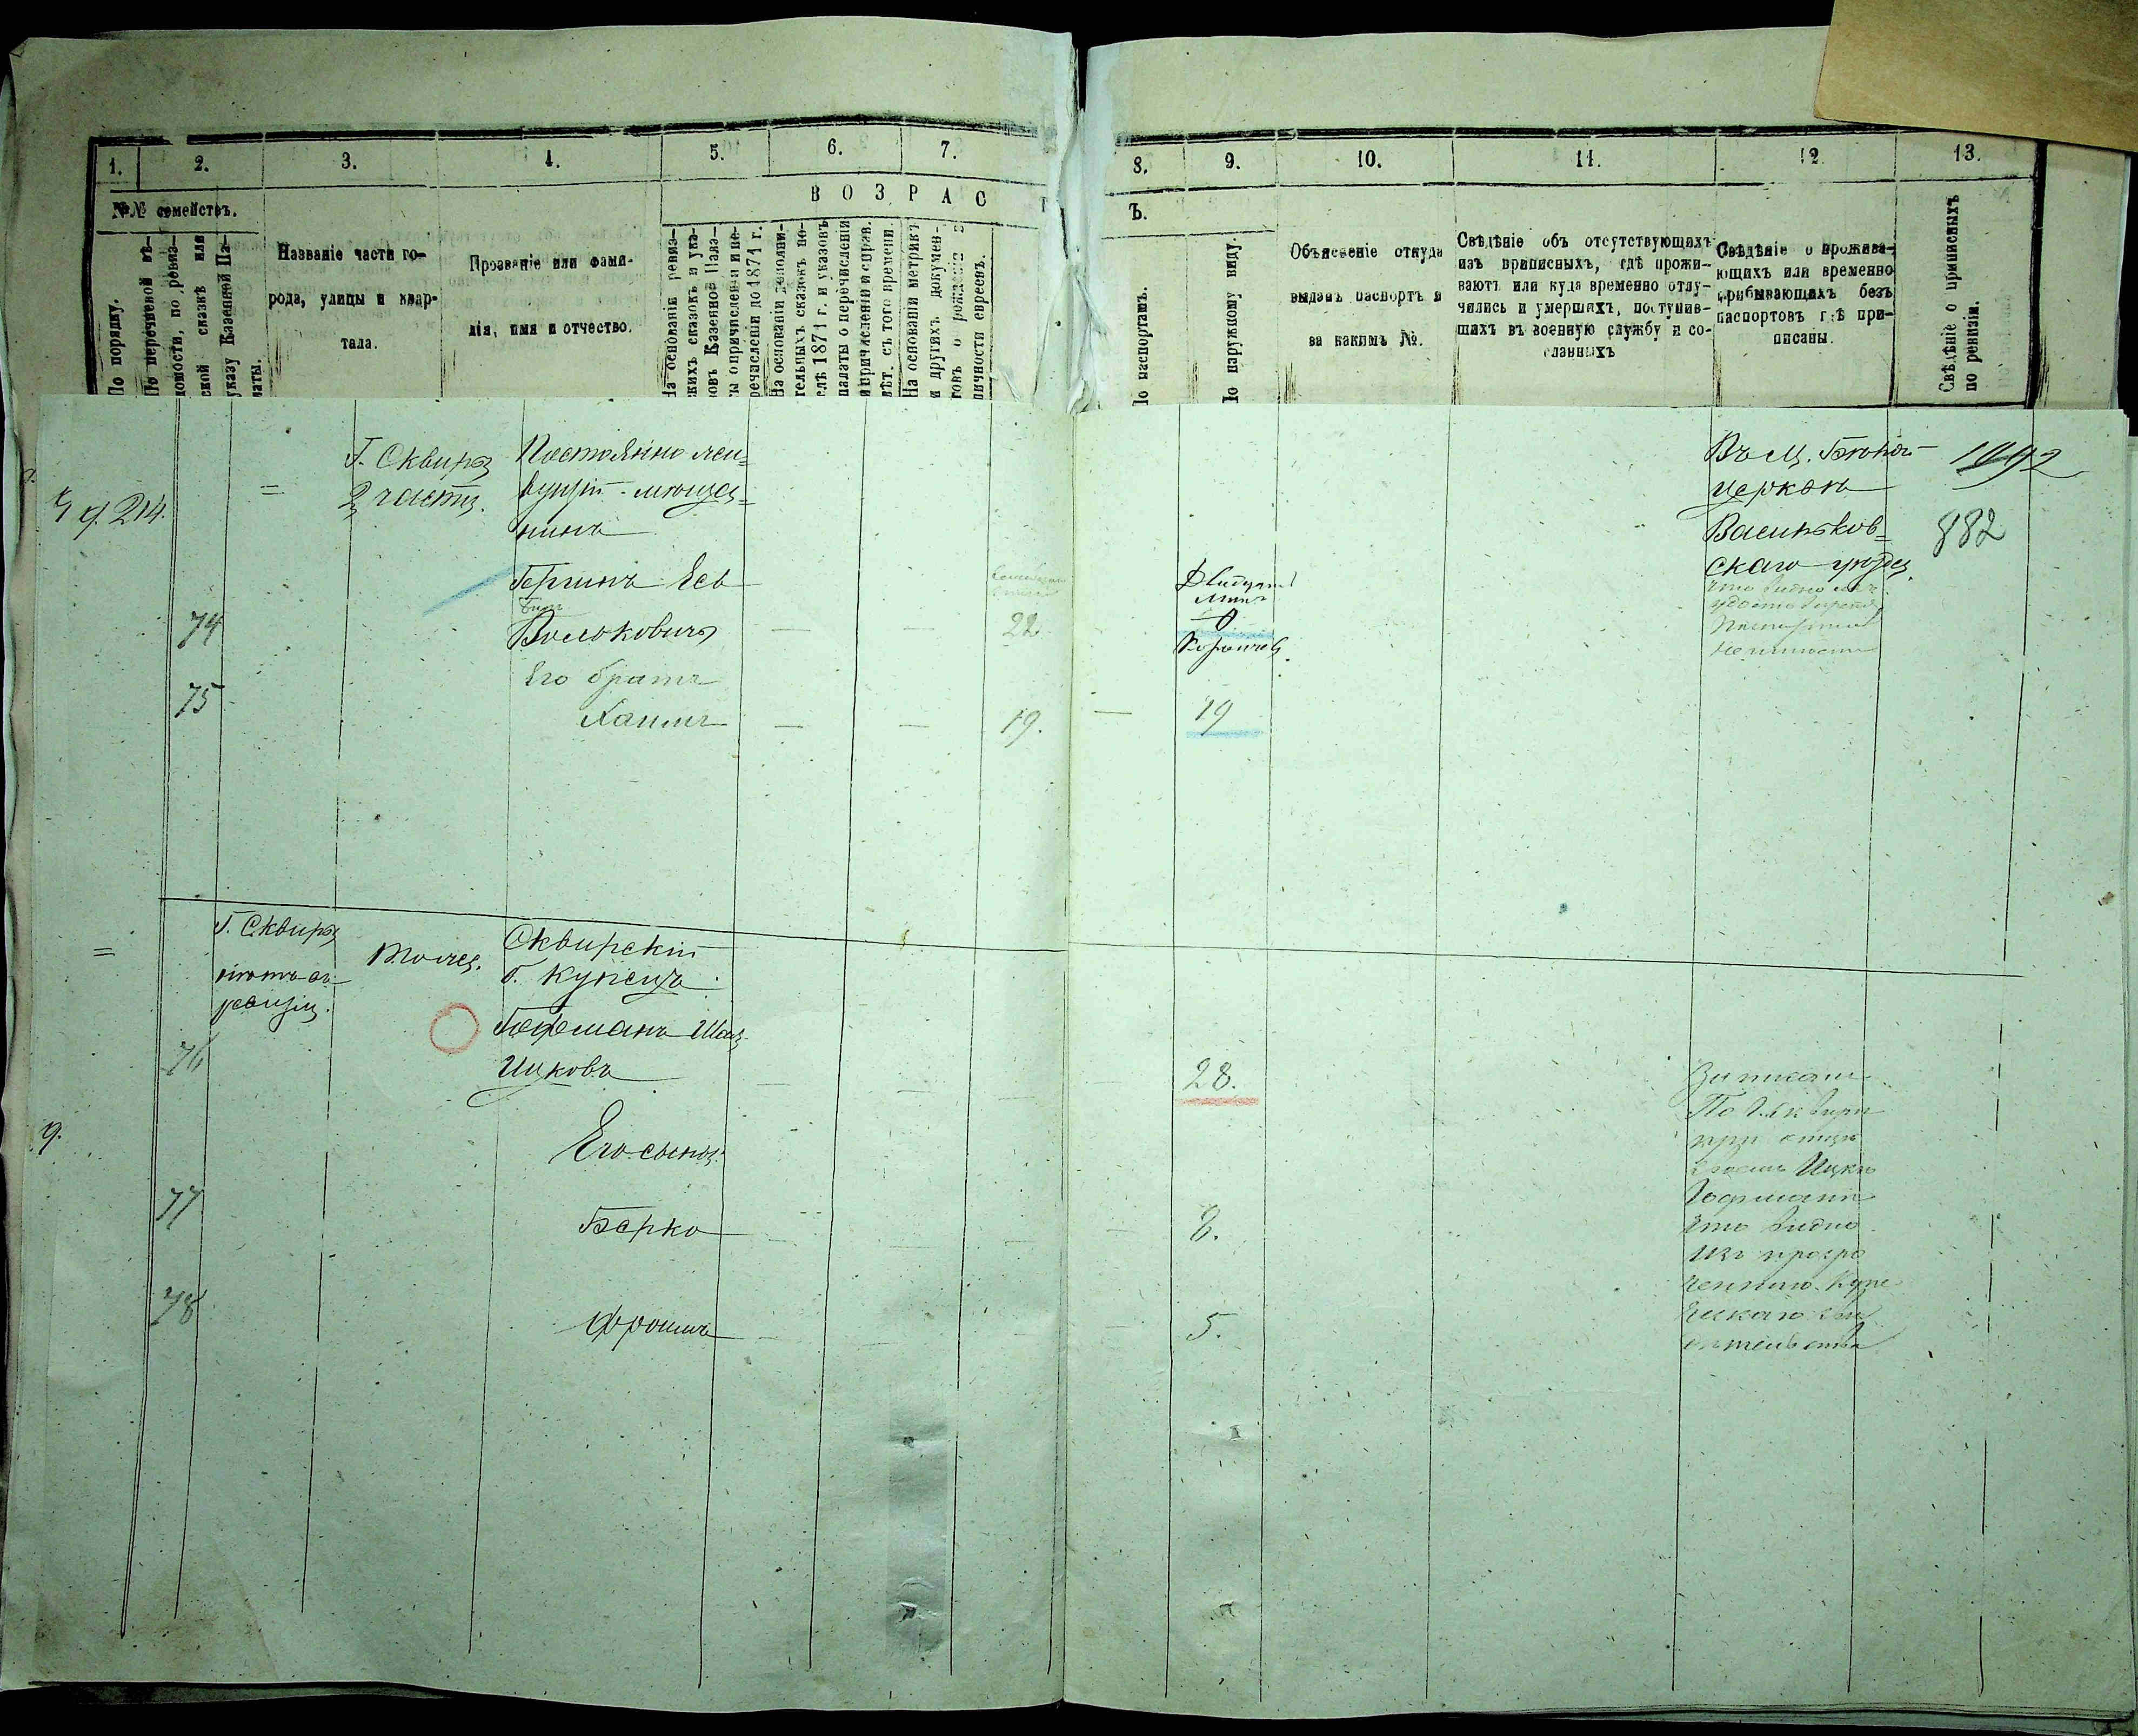 1.
2.
3.
4.
5.
6.
7.
8.
9.
10.
11.
12.
13.
В О З Р А С Т
Ъ.
№№ семействъ.
По порядку.
По перечневой вѣ-
домости, по ревиз-
ской сказкѣ или
указу Казенной Па-
латы.
Названіе части го-
рода, улицы и квар-
тала.
Прозваніе или фами-
лія, имя и отчество.
На основаніи ревиз-
скихъ сказокъ и ука-
зовъ Казенной Пала-
ты о причисленіи и пе-
речисленіи по 1871 г.
На основаніи дополни-
тельныхъ сказокъ по-
слѣ 1871 г. и указовъ
палаты о перечисленіи
и причисленіи и справ.
лѣт. съ того времени.
На основаніи метрикъ
и другихъ докумен-
товъ о рожденіи и
личности евреевъ.
По паспортамъ.
По наружному виду.
Объясненіе откуда
выданъ паспортъ и
за какимъ №.
Свѣдѣніе объ отсутствующихъ
изъ приписныхъ, гдѣ прожи-
ваютъ или куда временно отлу-
чились и умершихъ, поступив-
шихъ въ военную службу и со-
сланныхъ
Свѣдѣніе о прожива-
ющихъ или временно
прибывающихъ безъ
паспортовъ гдѣ при-
писаны.
Свѣдѣніе о приписныхъ
по ревизіи.
214.
=
Г. Сквира
2 части.
Постоянно жи-
вущій мѣща-
нинъ
Въ м. Бѣлой
церкви
Васильков-
скаго уѣзда
882
74
Волоковичъ
—
—
22.
75
Его братъ
Хаимъ
—
—
19.
—
19
=
Г. Сквира
ревизіи.
Тоже.
Сквирскій
б. купецъ
76
Ицковъ
28.
Записанъ
По г. Сквирѣ
при отцѣ
своемъ Ицкѣ
что видно
изъ просро
ченнаго купе
ческаго сви
дѣтельства
9.
Его сыны:
77
Берко
8.
78
Фроимъ
5.